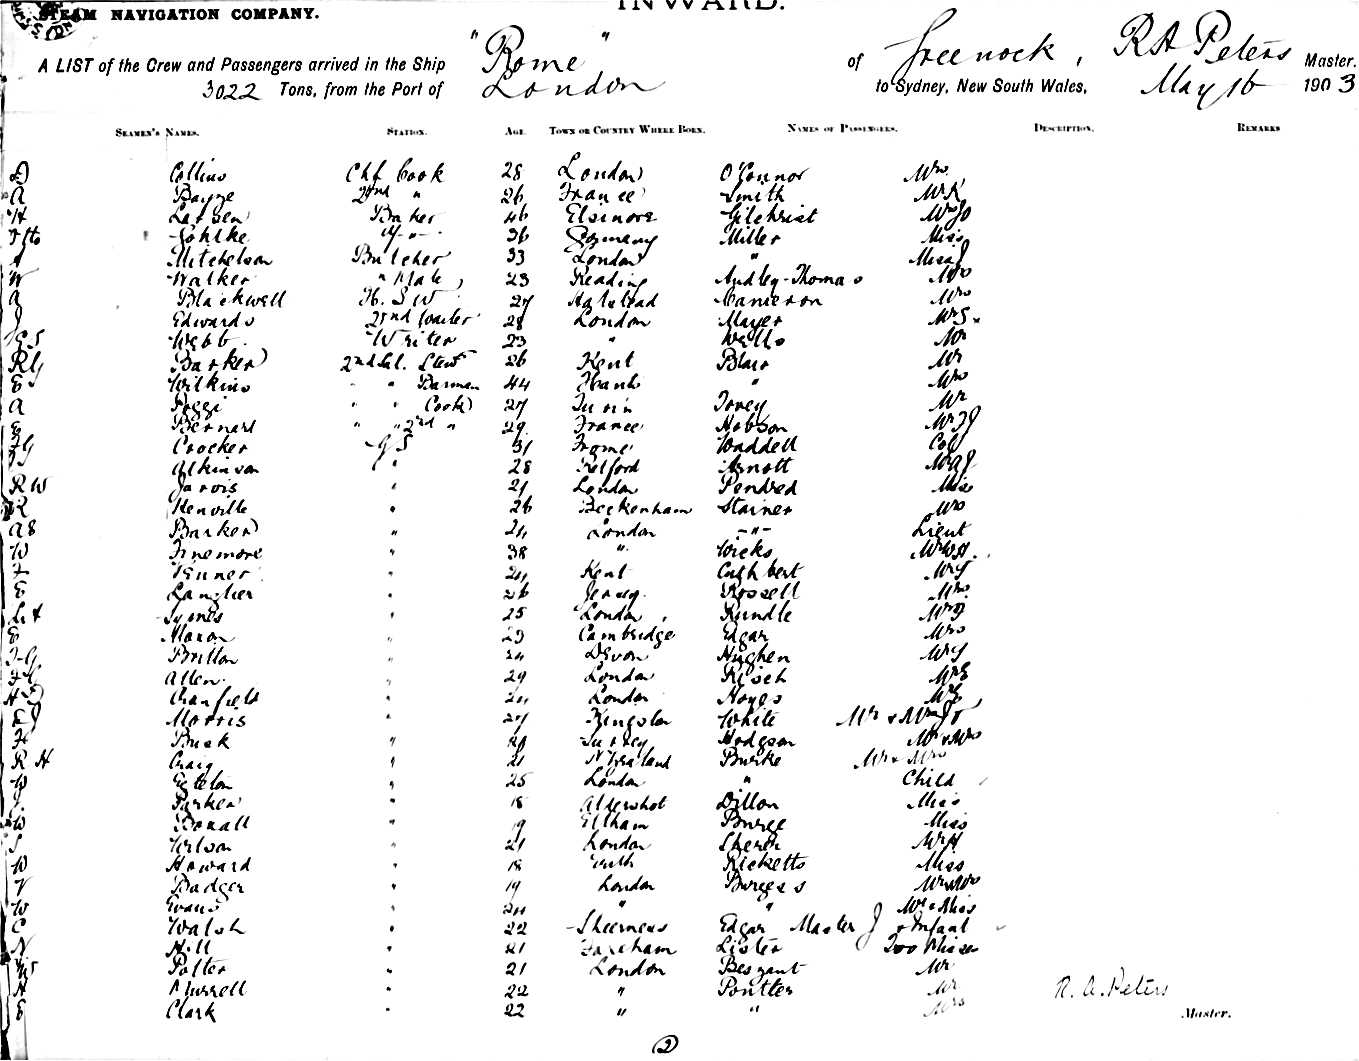 INWARD.
STEAM NAVIGATION COMPANY.
A LIST of the Crew and Passengers arrived in the Ship "Rome" of Greenock, R A Peters Master.
3022 Tons, from the Port of London to Sydney, New South Wales, May 16 1903
SEAMEN'S NAMES. STATION. AGE. TOWN OR COUNTRY WHERE BORN. NAMES OF PASSENGERS. DESCRIPTION. REMARKS
D Collins Chf Cook 28 London O'Connor Mrs
A 2nd " 26 France Smith Mr
H Larsen Baker 46 Elsinore Gilchrist
Gohlke 36 Germany Miller Miss
Mitchelson Butcher 33 London " Miss J
W Walker " Mate 23 Reading Audley-Thomas Mrs
A Blackwell 27 Halstead Cameron Mrs
J Edwards 2nd Waiter 28 London Mayer Mrs
Webb Writer 23 " Wells Mr
Barker 2nd Sal. Stewd 26 Kent Blair Mr
E Wilkins " " Barman 44 Hants " Mrs
A Poggi " " Cook 27 Turin Tovey Mr
E Bernard " " 2nd " 29 France Hobson
Crocker G S 31 Frome Waddell Col
Atkinson " 28 Arnott
R W Jarvis " 21 London Pendred Miss
R Henville " 26 Beckenham Stainer Mrs
A E Barker " London - " - Lieut
W Finemore " 38 " Wicks
F Tenner " Kent Cuthbert
E Langlier " 26 Jersey Rossell Mrs
Symes " 25 London Rundle
E Maxon " 23 Cambridge Edgar Mrs
Britton " Devon Hughen
Allen " 29 London Kisch
Cranfield " London Noyes
Morris " 27 Kingston White
Busk " Surrey Hodgson Mr & Mrs
R H Craig " 21 N Zealand Burke Mr & Mrs
W " 25 London " Child
Parker " 18 Aldershot Dillon Miss
W Bonall " 19 Eltham Burge Miss
S Wilson " 21 London
W Howard " 18 Ricketts Miss
V Badger " 19 London Burgess
W Evans " " " Mr & Miss
C Walsh " 22 Sheerness Edgar Master J & Infant
N Hill " 21 Fareham Lister Two Misses
Potter " 21 London Besgant Mr
H Murrell " 22 " Pontter Mr
E Clark " 22 " " Mrs
R. A. Peters
Master.
2